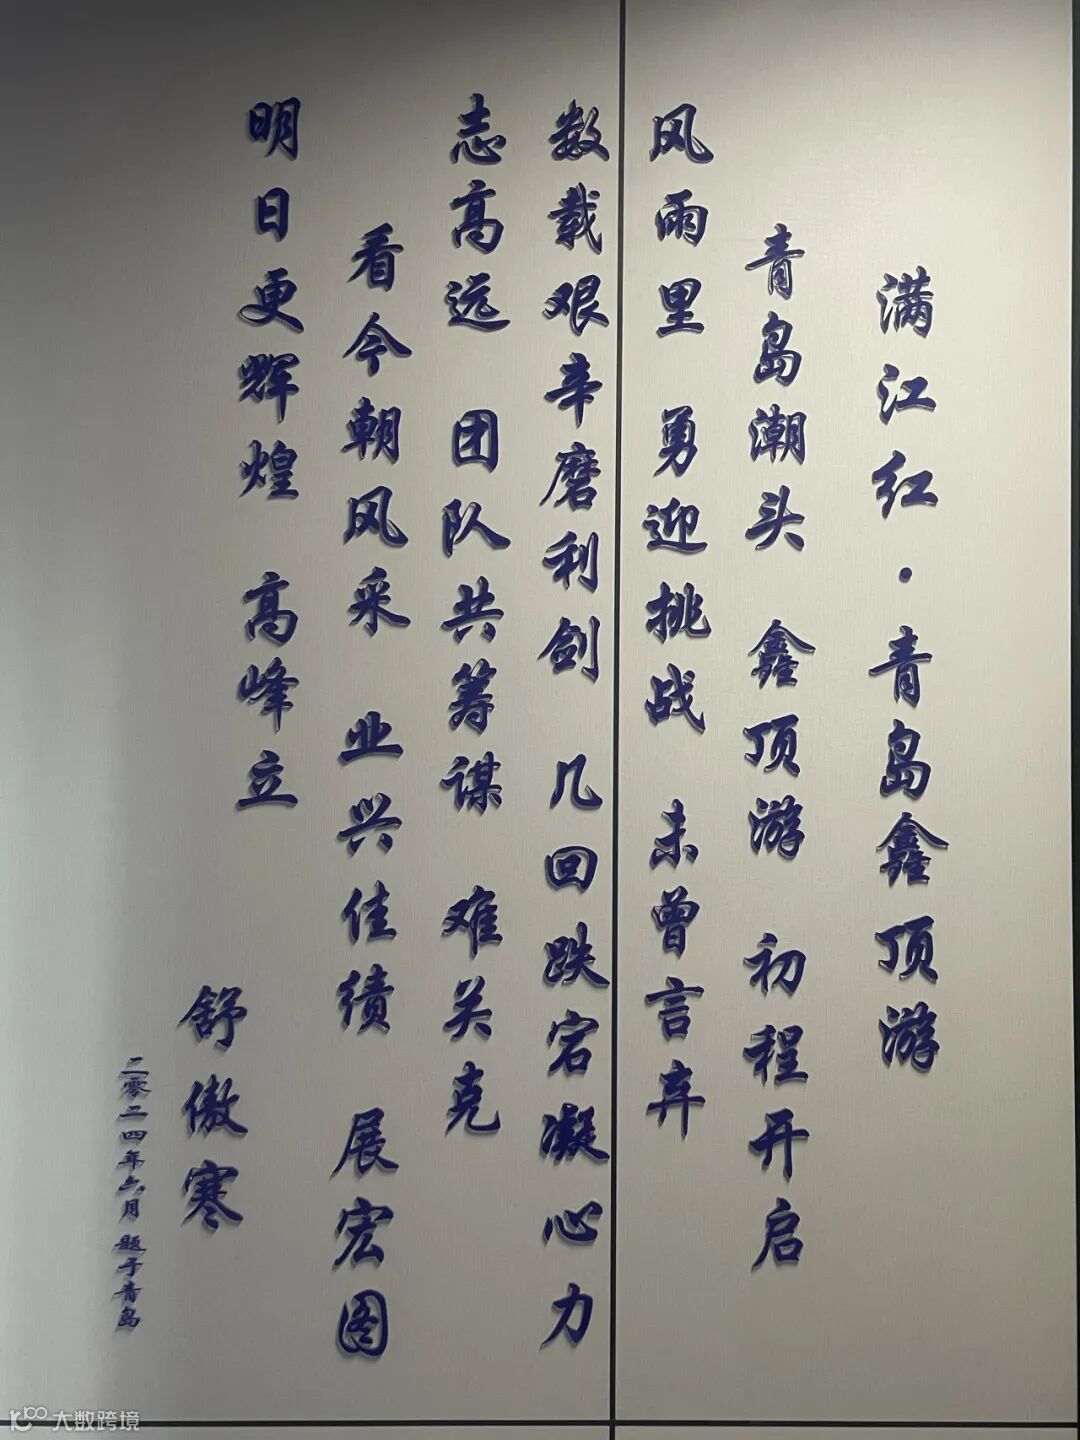 满江红·青岛鑫顶游
青岛潮头 鑫顶游 初程开启
风雨里 勇迎挑战 未曾言弃
数载艰辛磨利剑 几回跌宕凝心力
志高远 团队共筹谋 难关克
看今朝风采 业兴佳绩 展宏图
明日更辉煌 高峰立
舒傲寒
二零二四年六月 题于青岛
大数跨境